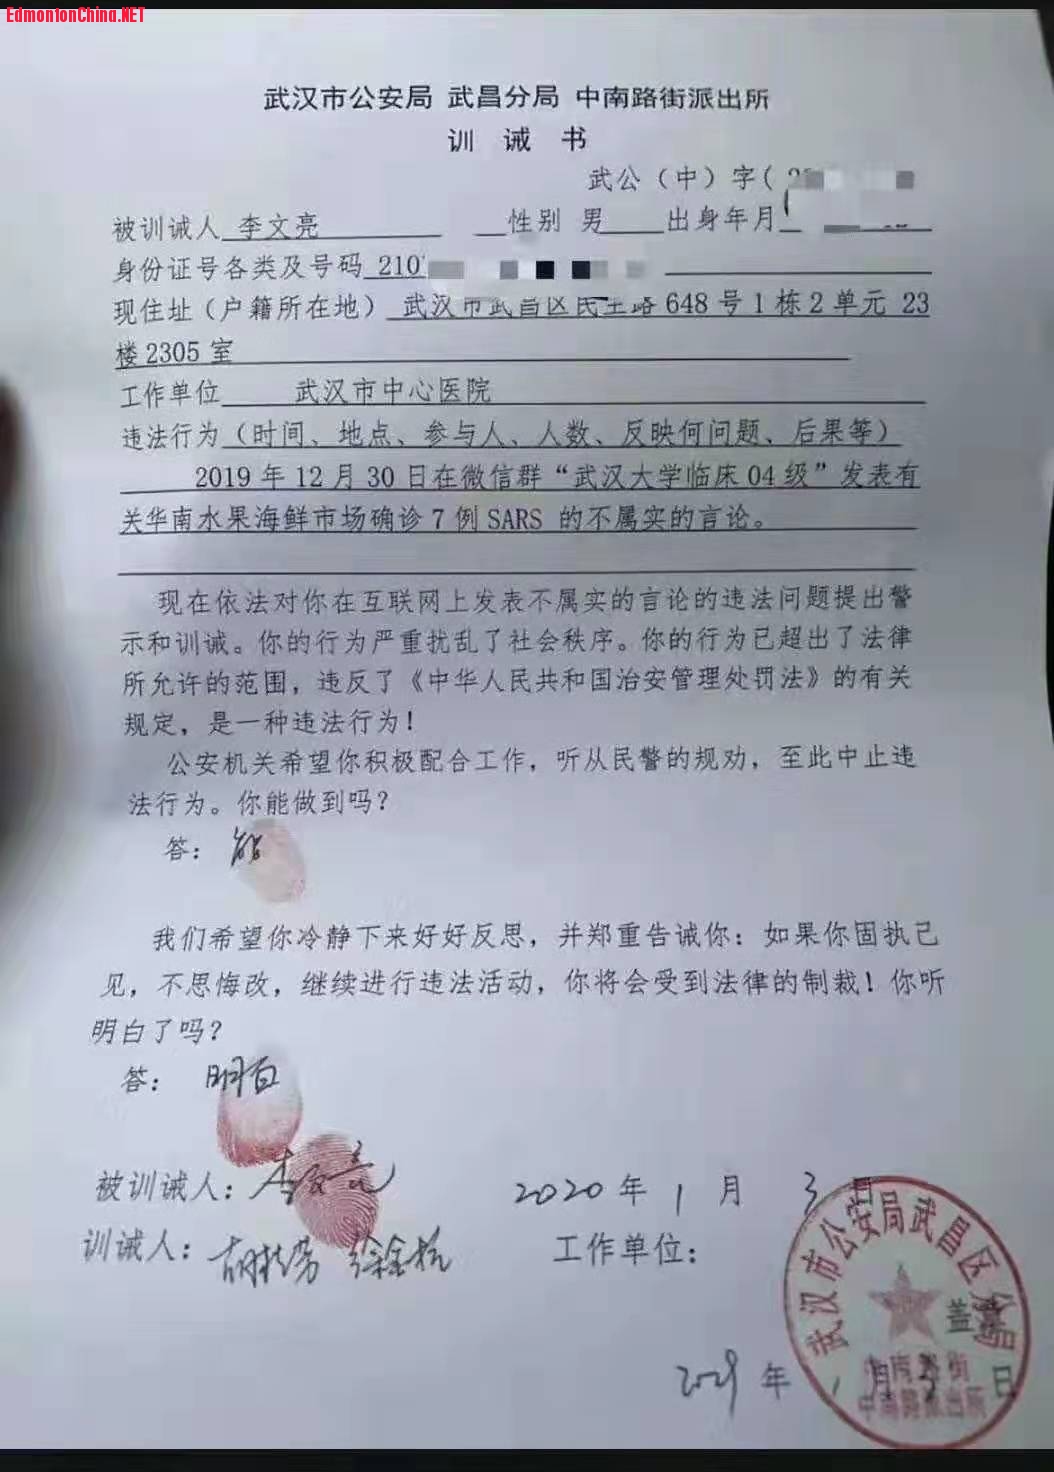 EdmontonChina.NET
武汉市公安局 武昌分局 中南路街派出所
训 诫 书
武公（中）字（
被训诫人 李文亮 性别 男 出身年月
身份证号各类及号码 210
现住址（户籍所在地） 武汉市武昌区民主路 648 号 1 栋 2 单元 23
楼 2305 室
工作单位 武汉市中心医院
违法行为（时间、地点、参与人、人数、反映何问题、后果等）
2019 年 12 月 30 日在微信群“武汉大学临床 04 级”发表有
关华南水果海鲜市场确诊 7 例 SARS 的不属实的言论。
现在依法对你在互联网上发表不属实的言论的违法问题提出警
示和训诫。你的行为严重扰乱了社会秩序。你的行为已超出了法律
所允许的范围，违反了《中华人民共和国治安管理处罚法》的有关
规定，是一种违法行为！
公安机关希望你积极配合工作，听从民警的规劝，至此中止违
法行为。你能做到吗？
答： 能
我们希望你冷静下来好好反思，并郑重告诫你：如果你固执己
见，不思悔改，继续进行违法活动，你将会受到法律的制裁！你听
明白了吗？
答： 明白
被训诫人：李文亮 2020 年 1 月 3 日
训诫人： 工作单位：
武汉市公安局武昌区分局
盖章
中南路街
中南路派出所
年 1 月 3 日